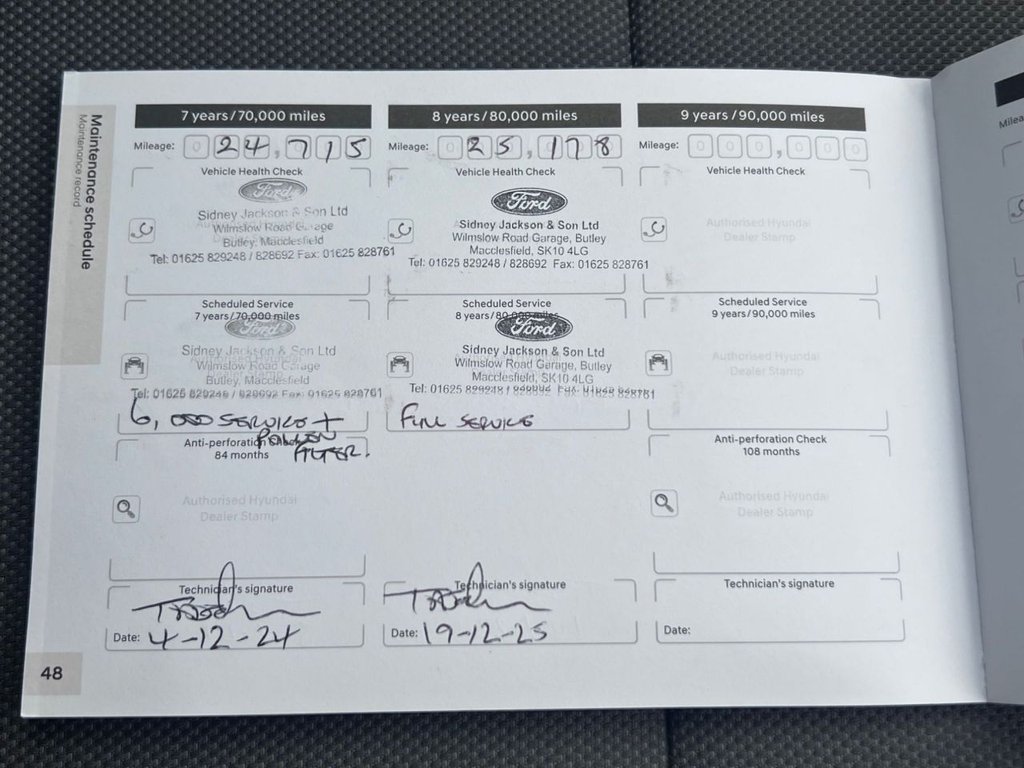 Maintenance schedule
Maintenance record
7 years/70,000 miles
Mileage: 024,715
Vehicle Health Check
Ford
Sidney Jackson & Son Ltd
Wilmslow Road Garage
Butley, Macclesfield
Tel: 01625 829248 / 828692 Fax: 01625 828761
Scheduled Service
7 years/70,000 miles
Ford
Sidney Jackson & Son Ltd
Wilmslow Road Garage
Butley, Macclesfield
Tel: 01625 829248 / 828692 Fax: 01625 828761
6,000 SERVICE +
POLLEN
FILTER.
Anti-perforation Check
84 months
Authorised Hyundai
Dealer Stamp
Technician's signature
Date: 4-12-24
8 years/80,000 miles
Mileage: 025,178
Vehicle Health Check
Ford
Sidney Jackson & Son Ltd
Wilmslow Road Garage, Butley
Macclesfield, SK10 4LG
Tel: 01625 829248 / 828692 Fax: 01625 828761
Scheduled Service
8 years/80,000 miles
Ford
Sidney Jackson & Son Ltd
Wilmslow Road Garage, Butley
Macclesfield, SK10 4LG
Tel: 01625 829248 / 828692 Fax: 01625 828761
FULL SERVICE
Technician's signature
Date: 19-12-25
9 years/90,000 miles
Mileage: 000,000
Vehicle Health Check
Authorised Hyundai
Dealer Stamp
Scheduled Service
9 years/90,000 miles
Authorised Hyundai
Dealer Stamp
Anti-perforation Check
108 months
Authorised Hyundai
Dealer Stamp
Technician's signature
Date:
48